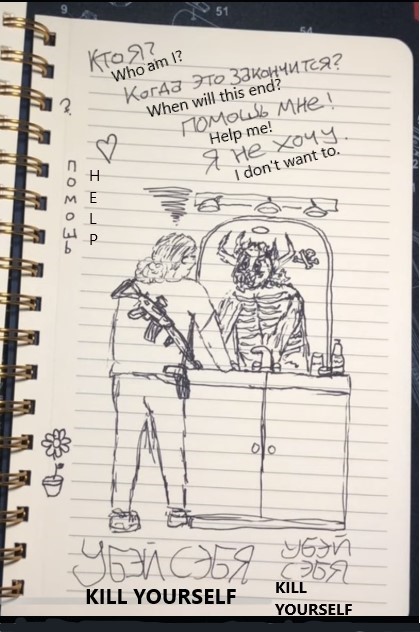 9
51
54
Кто я?
Who am I?
Когда это закончится?
When will this end?
ПОМОШЬ МНЕ!
Help me!
Я не хочу.
I don't want to.
?
ПОМОШЬ
HELP
УБЭЙ СЭБЯ
KILL YOURSELF
УБЭЙ
СЭБЯ
KILL
YOURSELF